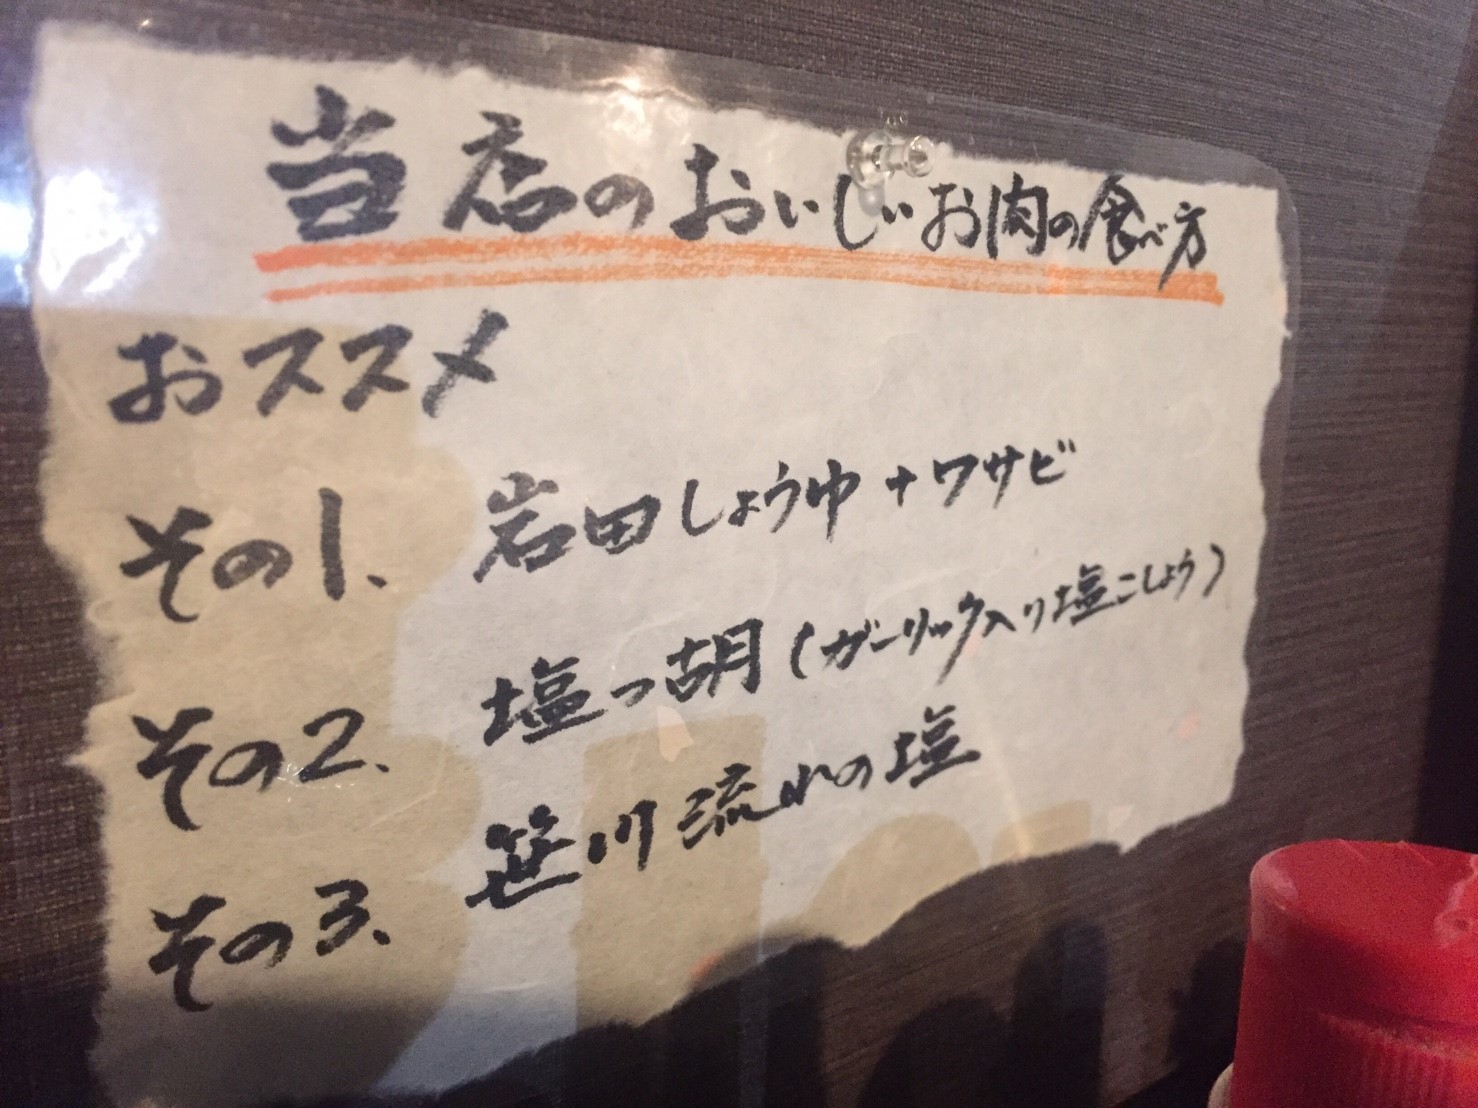 当店のおいしいお肉の食べ方
おススメ
その1、 岩田しょうゆ+ワサビ
その2、 塩っ胡(ガーリック入り塩こしょう)
その3、 笹川流れの塩